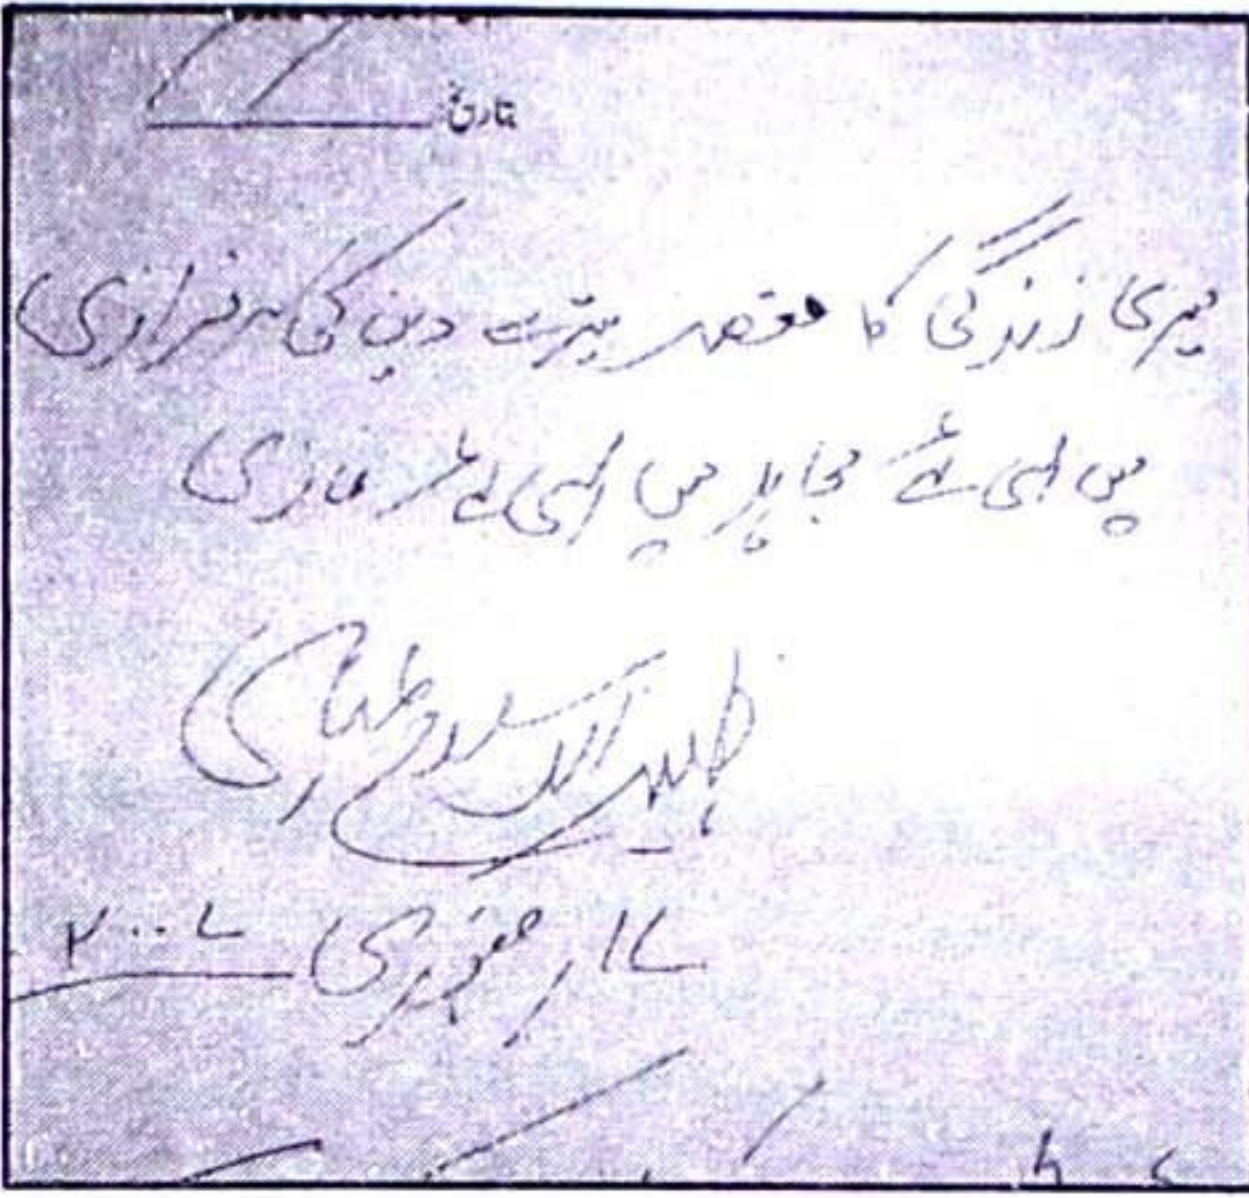 تاریخ
میری زندگی کا مقصد تیرے دین کی سرفرازی
میں اسی لئے مجاہد میں اسی لئے غازی
جنوری ۲۰۰۲